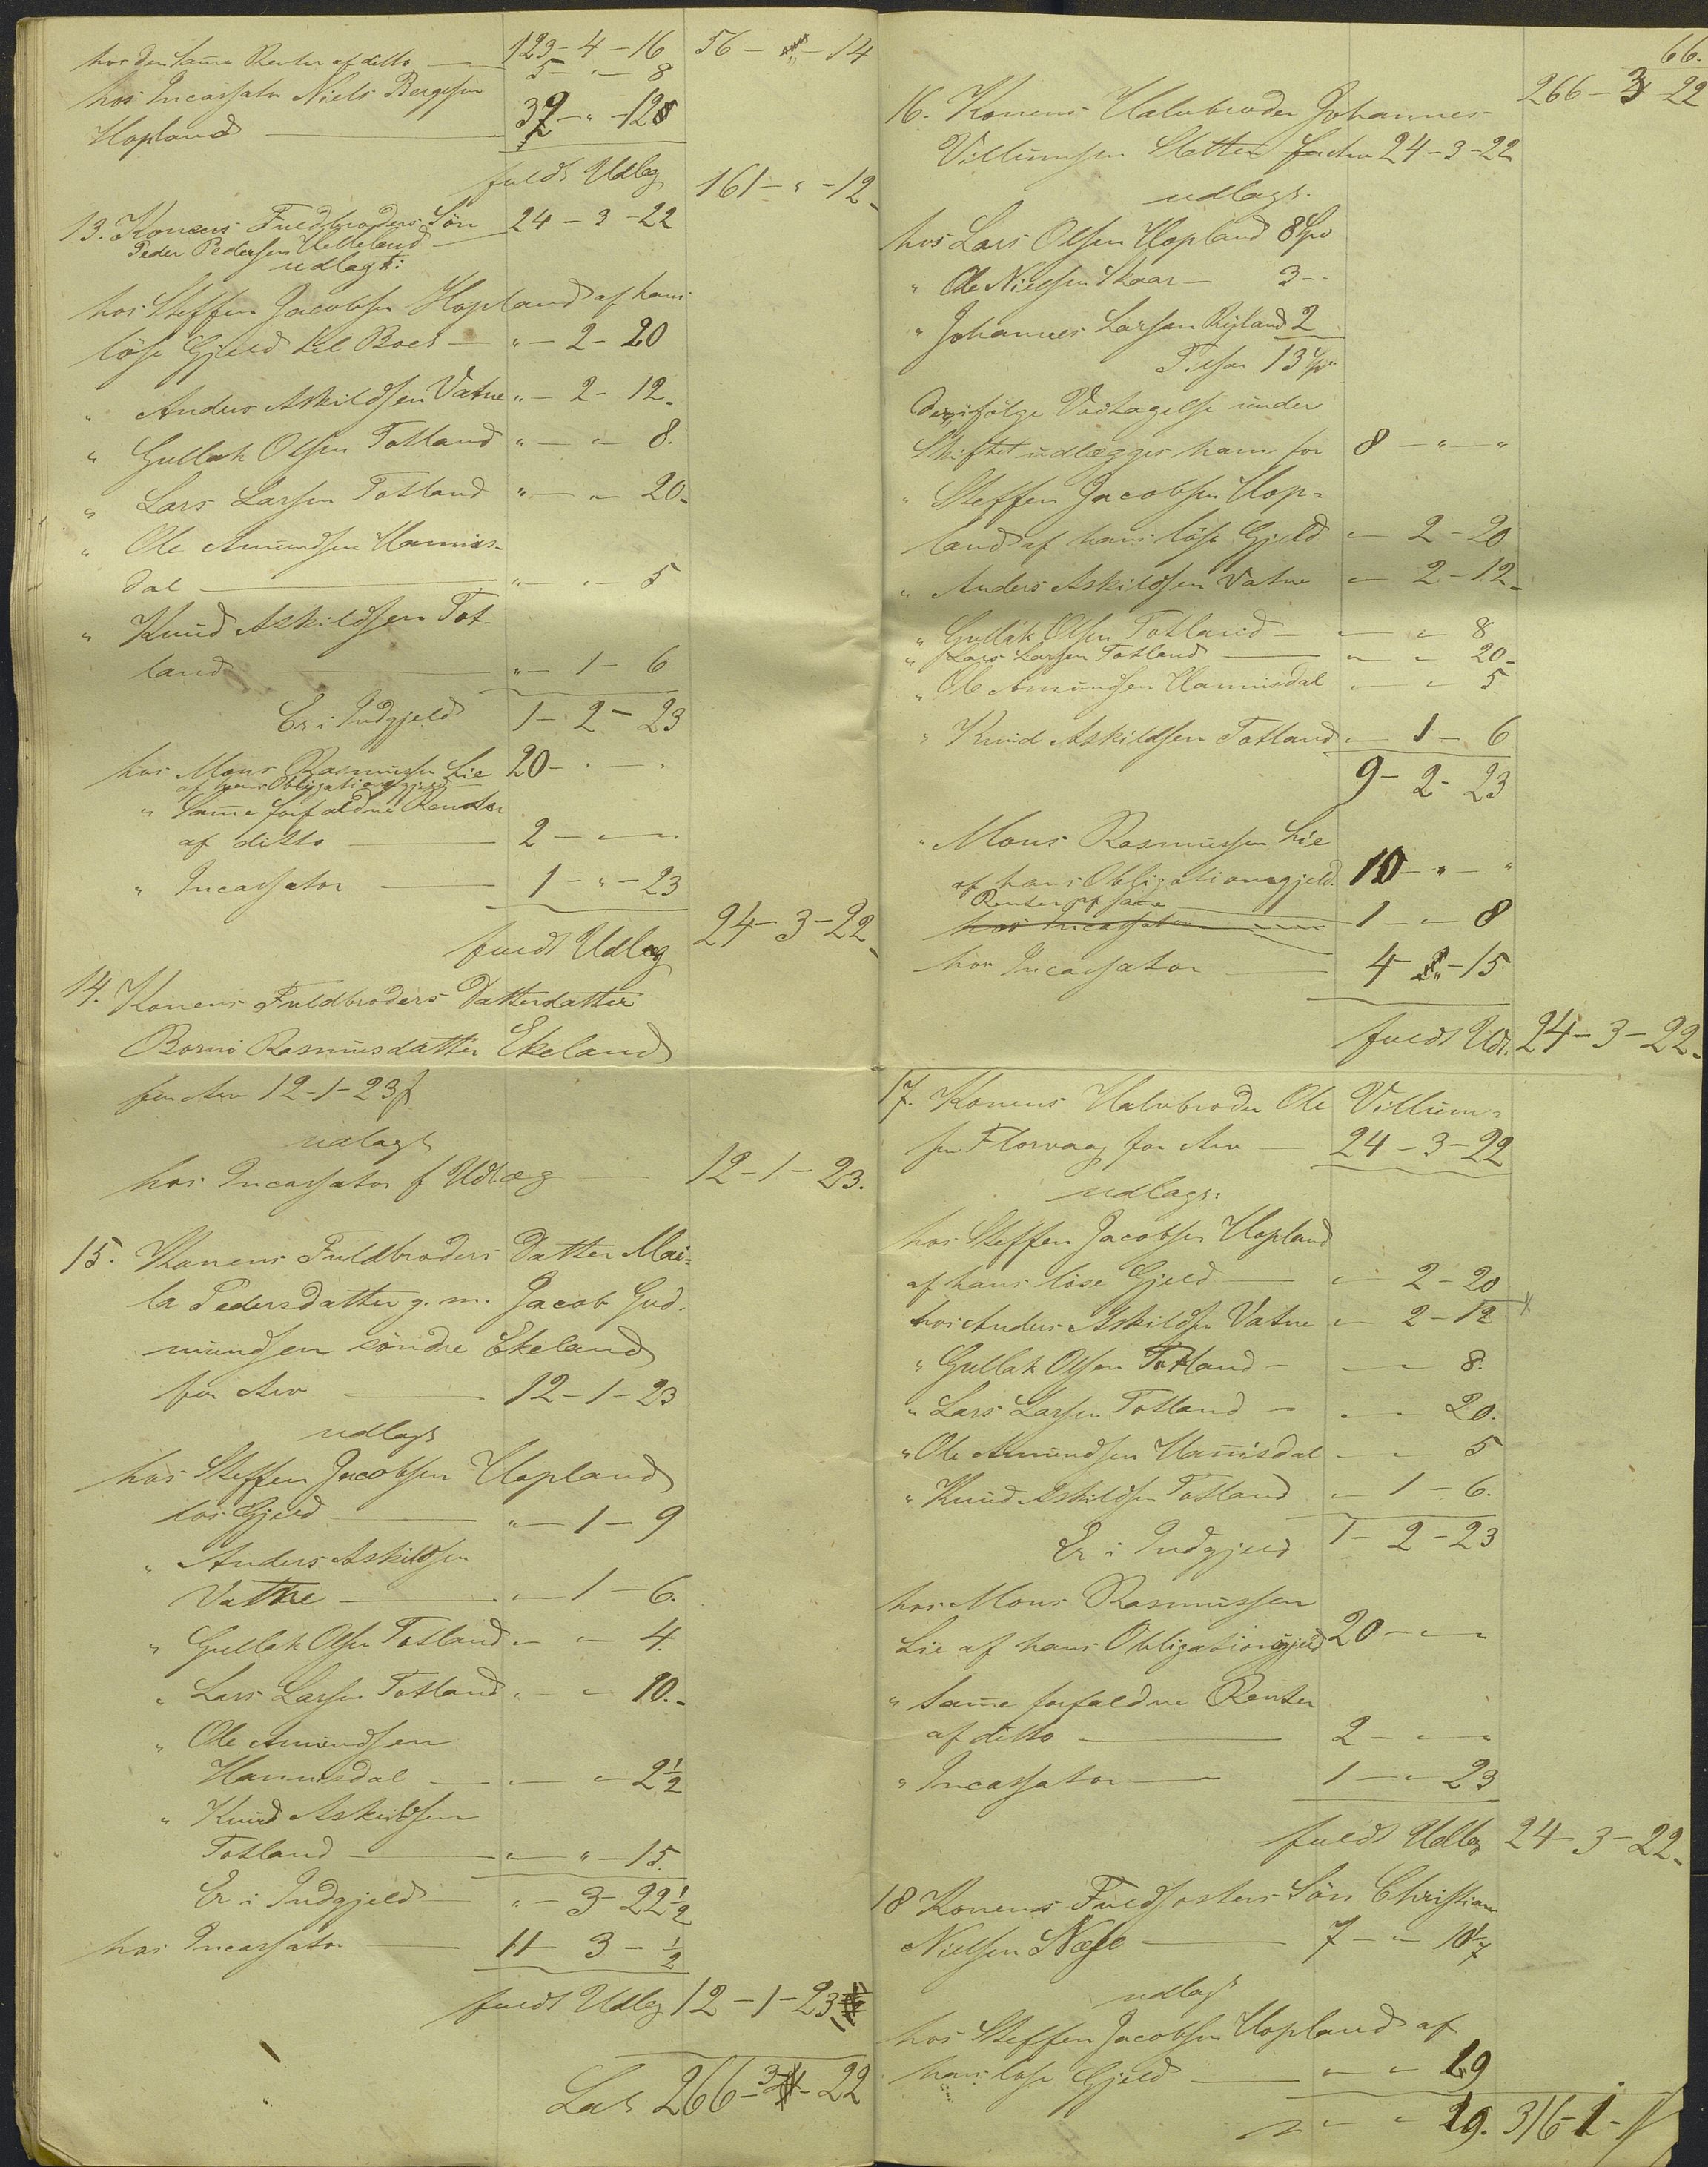 123-4-16 56-"-14
hos den samme Renter af ditto — 5-"-8
hos Incassator Niels Bergesen
Hopland — 32-"-12
fuldt Udleg 161-"-12
13. Konens Fuldbroders Sön 24-3-22
Peder Pedersen Helleland
udlagt:
hos Steffen Jacobsen Hopland af hans
löse Gjeld til Boet — "-2-20
" Anders Askildsen Vatne "-2-12
" Gullak Olsen Totland "-"-8
" Lars Larsen Totland "-"-20
" Ole Amundsen Hannis-
dal — "-"-5
" Knud Askildsen Tot-
land "-1-6
Er i Indgjeld 1-2-23
hos Mons Rasmussen Lie 20-"-"
af hans Obligationsgjeld
" Samme forfaldne Renter
af ditto — 2-"-"
" Incassator — 1-"-23
fuldt Udleg 24-3-22
14. Konens Fuldbroders Datterdatter
Rasmusdatter Ekeland
for Arv 12-1-23 f
udlagt
hos Incassator f Udlæg — 12-1-23.
15. Konens Fuldbroders Datter Mai-
la Pedersdatter g. m. Jacob Gud-
mundsen söndre Ekeland
for Arv — 12-1-23
udlagt
hos Steffen Jacobsen Hopland
lös Gjeld — "-1-9
" Anders Askildsen
Vatne — "-1-6.
" Gullak Olsen Totland "-"-4.
" Lars Larsen Totland "-"-10.
" Ole Amundsen
Hannisdal — "-"-2½
" Knud Askildsen
Totland — "-"-15.
Er i Indgjeld "-3-22½
hos Incassator — 11-3-½
fuldt Udleg 12-1-23
Lat 266-3-22
66.
266-3-22
16. Konens Halvbroder Johannes
Villumsen Sletten for Arv 24-3-22
udlagt.
hos Lars Olsen Hopland 8 Spd
" Ole Nielsen Skaar — 3-"
" Johannes Larsen Ryland 2
Tilsam 13 Spd
der ifölge Vedtagelse under
Skiftet udlægges ham for 8-"-"
" Steffen Jacobsen Hop-
land af hans löse Gjeld "-2-20
" Anders Askildsen Vatne "-2-12
" Gullak Olsen Totland — "-"-8
" Lars Larsen Totland — "-"-20
" Ole Amundsen Hannisdal "-"-5
" Knud Askildsen Totland "-1-6
9-2-23
" Mons Rasmussen Lie
af hans Obligationsgjeld. 10-"-"
Renter af samme
hos Incassator 1-"-8
hos Incassator — 4-"-15
fuldt Udl. 24-3-22
17. Konens Halvbroder Ole Villum-
sen Florvaag for Arv — 24-3-22
udlagt:
hos Steffen Jacobsen Hopland
af hans löse Gjeld — "-2-20
hos Anders Askildsen Vatne "-2-12
" Gullak Olsen Totland — "-"-8.
" Lars Larsen Totland — "-"-20.
" Ole Amundsen Hannisdal "-"-5
" Knud Askildsen Totland "-1-6.
Er i Indgjeld 1-2-23
hos Mons Rasmussen
Lie af hans Obligationsgjeld 20-"-"
" Samme forfaldne Renter
af ditto — 2-"-"
" Incassator — 1-"-23
fuldt Udleg 24-3-22
18 Konens Fuldsösters Sön Christian
Nielsen Næse — 7-"-10
udlagt
hos Steffen Jacobsen Hopland af
hans löse Gjeld — "-"-19
"-"-19. 316-1-